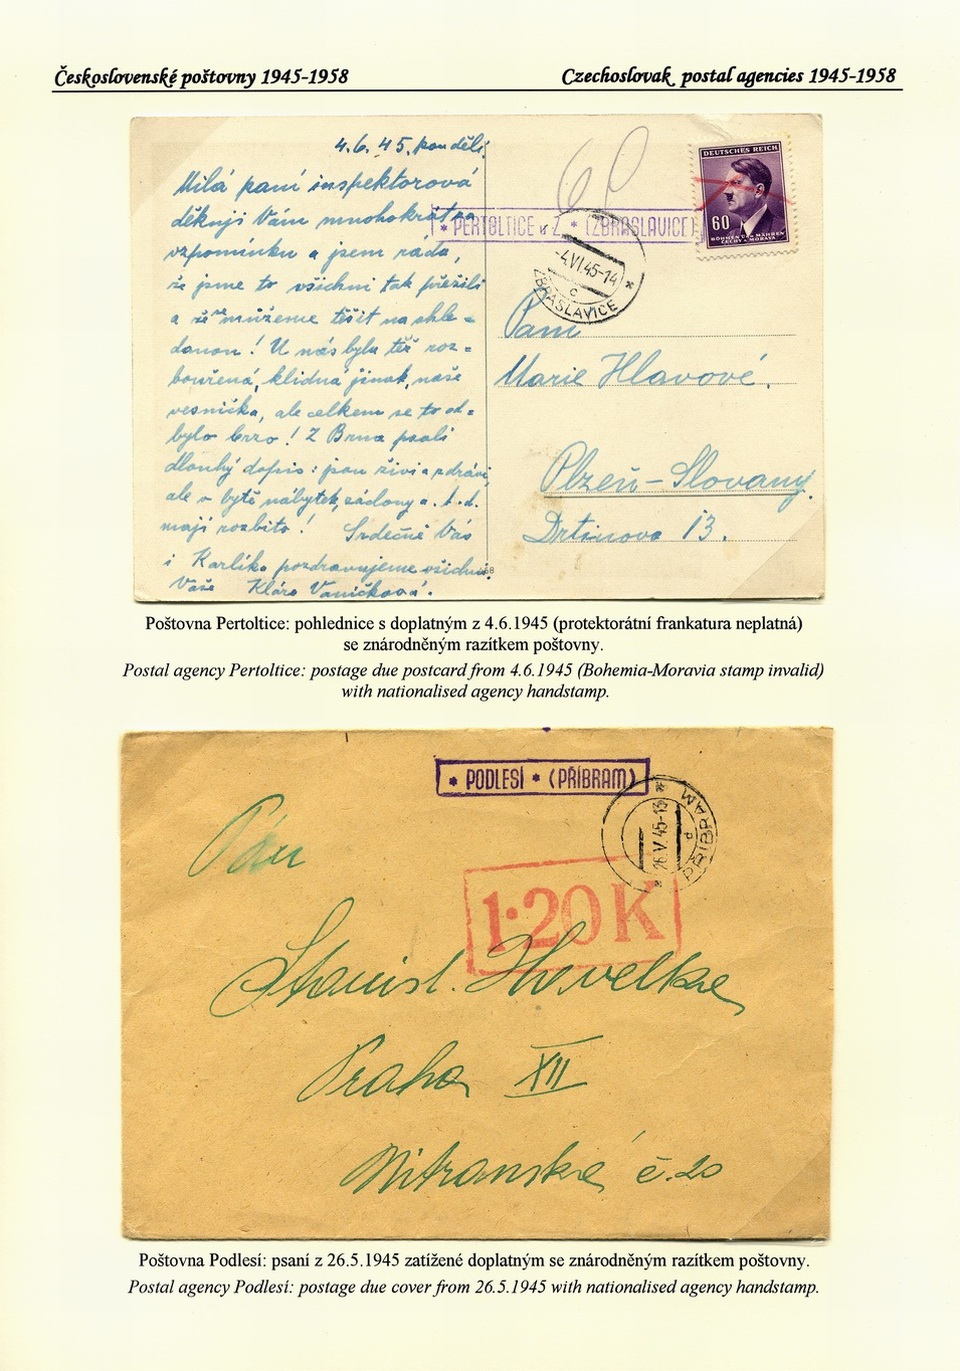 Československé poštovny 1945-1958
Czechoslovak postal agencies 1945-1958
4.6.45. pondělí
Milá paní inspektorová
děkuji Vám mnohokrát za
vzpomínku a jsem ráda,
že jsme to všichni tak přežili
a že se můžeme těšit na shle-
danou! U nás byla též roz-
bouřená, klidná jinak, naše
vesnička, ale celkem se to od-
bylo brzo! Z Brna psali
dlouhý dopis: jsou živi a zdrávi,
ale v bytě nábytek, záclony a.t.d.
mají rozbito! Srdečně Vás
i Karlíka pozdravujeme všichni.
Vaše Klára Vaníčková.
60
* PERTOLTICE u Z. * (ZBRASLAVICE)
-4.VI.45-14
c
ZBRASLAVICE
DEUTSCHES REICH
60
BÖHMEN U. MÄHREN
ČECHY A MORAVA
Paní
Marie Hlavové.
Plzeň - Slovany.
Drtinova 13.
Poštovna Pertoltice: pohlednice s doplatným z 4.6.1945 (protektorátní frankatura neplatná)
se znárodněným razítkem poštovny.
Postal agency Pertoltice: postage due postcard from 4.6.1945 (Bohemia-Moravia stamp invalid)
with nationalised agency handstamp.
* PODLESÍ * (PŘÍBRAM)
PŘÍBRAM
26.V.45-13
1·20 K
Pán
Stanisl. Hovelka
Praha XII
Nitranská č. 20
Poštovna Podlesí: psaní z 26.5.1945 zatížené doplatným se znárodněným razítkem poštovny.
Postal agency Podlesí: postage due cover from 26.5.1945 with nationalised agency handstamp.